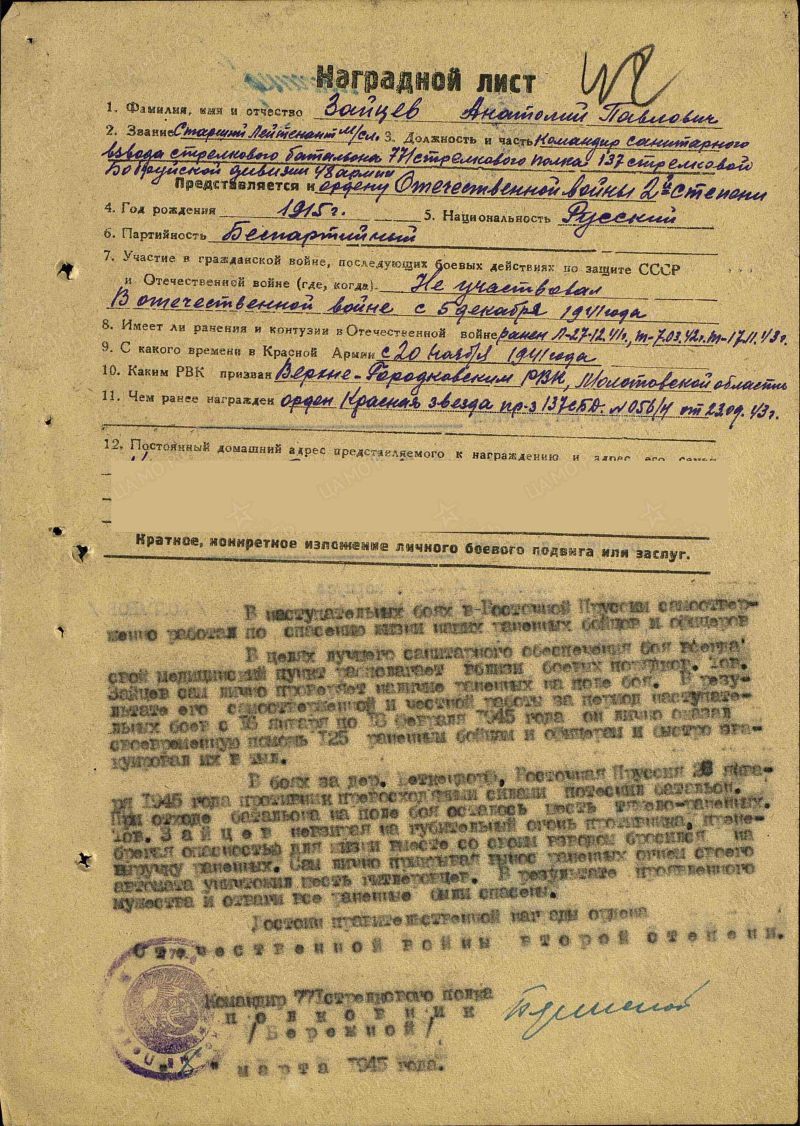 Наградной лист
1. Фамилия, имя и отчество Зайцев Анатолий Павлович
2. Звание Старший Лейтенант м/сл. 3. Должность и часть Командир санитарного
взвода стрелкового батальона 771 стрелкового полка 137 стрелковой
Бобруйской дивизии 48 армии
Представляется к ордену Отечественной войны 2й степени
4. Год рождения 1915г. 5. Национальность Русский
6. Партийность Беспартийный
7. Участие в гражданской войне, последующих боевых действиях по защите СССР
и Отечественной войне (где, когда). Не участвовал
В отечественной войне с 5 декабря 1941 года
8. Имеет ли ранения и контузии в Отечественной войне ранен Л-27-12.41г., т-7.03.42г. т-17.11.43г.
9. С какого времени в Красной Армии с 20 ноября 1941 года
10. Каким РВК призван Верхне-Городковским РВК, Молотовской области
11. Чем ранее награжден орден Красная звезда пр-з 137 сбд. №056/н от 23.09.43г.
12. Постоянный домашний адрес представляемого к награждению и адрес его семьи
Краткое, конкретное изложение личного боевого подвига или заслуг.
В наступательных боях в Восточной Пруссии самоотвер-
женно работал по спасению жизни наших раненных бойцов и офицеров
В целях лучшего санитарного обеспечения боя всегда
свой медицинский пункт располагает вблизи боевых порядков. Тов.
Зайцев сам лично проверяет наличие раненых на поле боя. В резу-
льтате его самоотверженной и честной работы за период наступате-
льных боев с 16 января по 18 февраля 1945 года он лично оказал
своевременную помощь 125 раненным бойцам и офицерам и быстро эва-
куировал их в тыл.
В боях за дер. Восточная Пруссия 28 янва-
ря 1945 года противник превосходящими силами потеснил батальон.
При отходе батальона на поле боя осталось шесть тяжело-раненных.
Тов. Зайцев невзирая на губительный огонь противника, прене-
брегая опасностью для жизни вместе со своим взводом бросился на
выручку раненных. Сам лично прикрывая вынос раненных огнем своего
автомата уничтожил шесть гитлеровцев. В результате проявленного
мужества и отваги все раненные были спасены.
Достоин правительственной награды ордена
Отечественной войны второй степени.
Командир 771 стрелкового полка
полковник
/Бережной/
марта 1945 года.